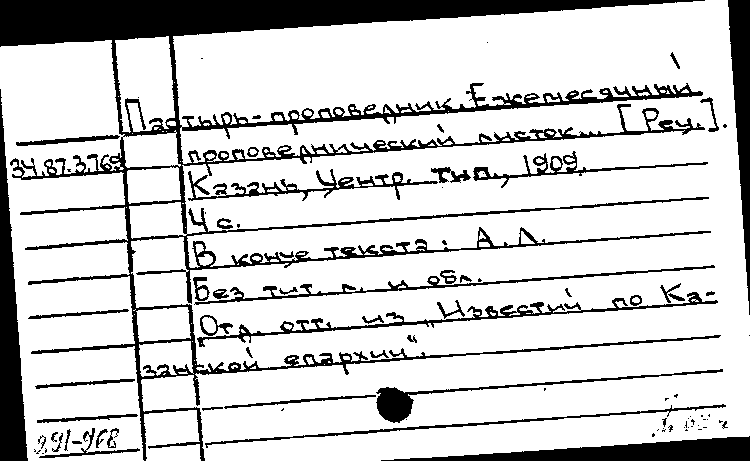 Пастырь-проповедник. Ежемесячный
проповеднический листок... [Рец.].
34.87.3.769
Казань, Центр. тип., 1909.
4 с.
В конце текста: А. Л.
Без тит. л. и обл.
Отд. отт. из „Известий по Ка-
занской епархии".
291-968